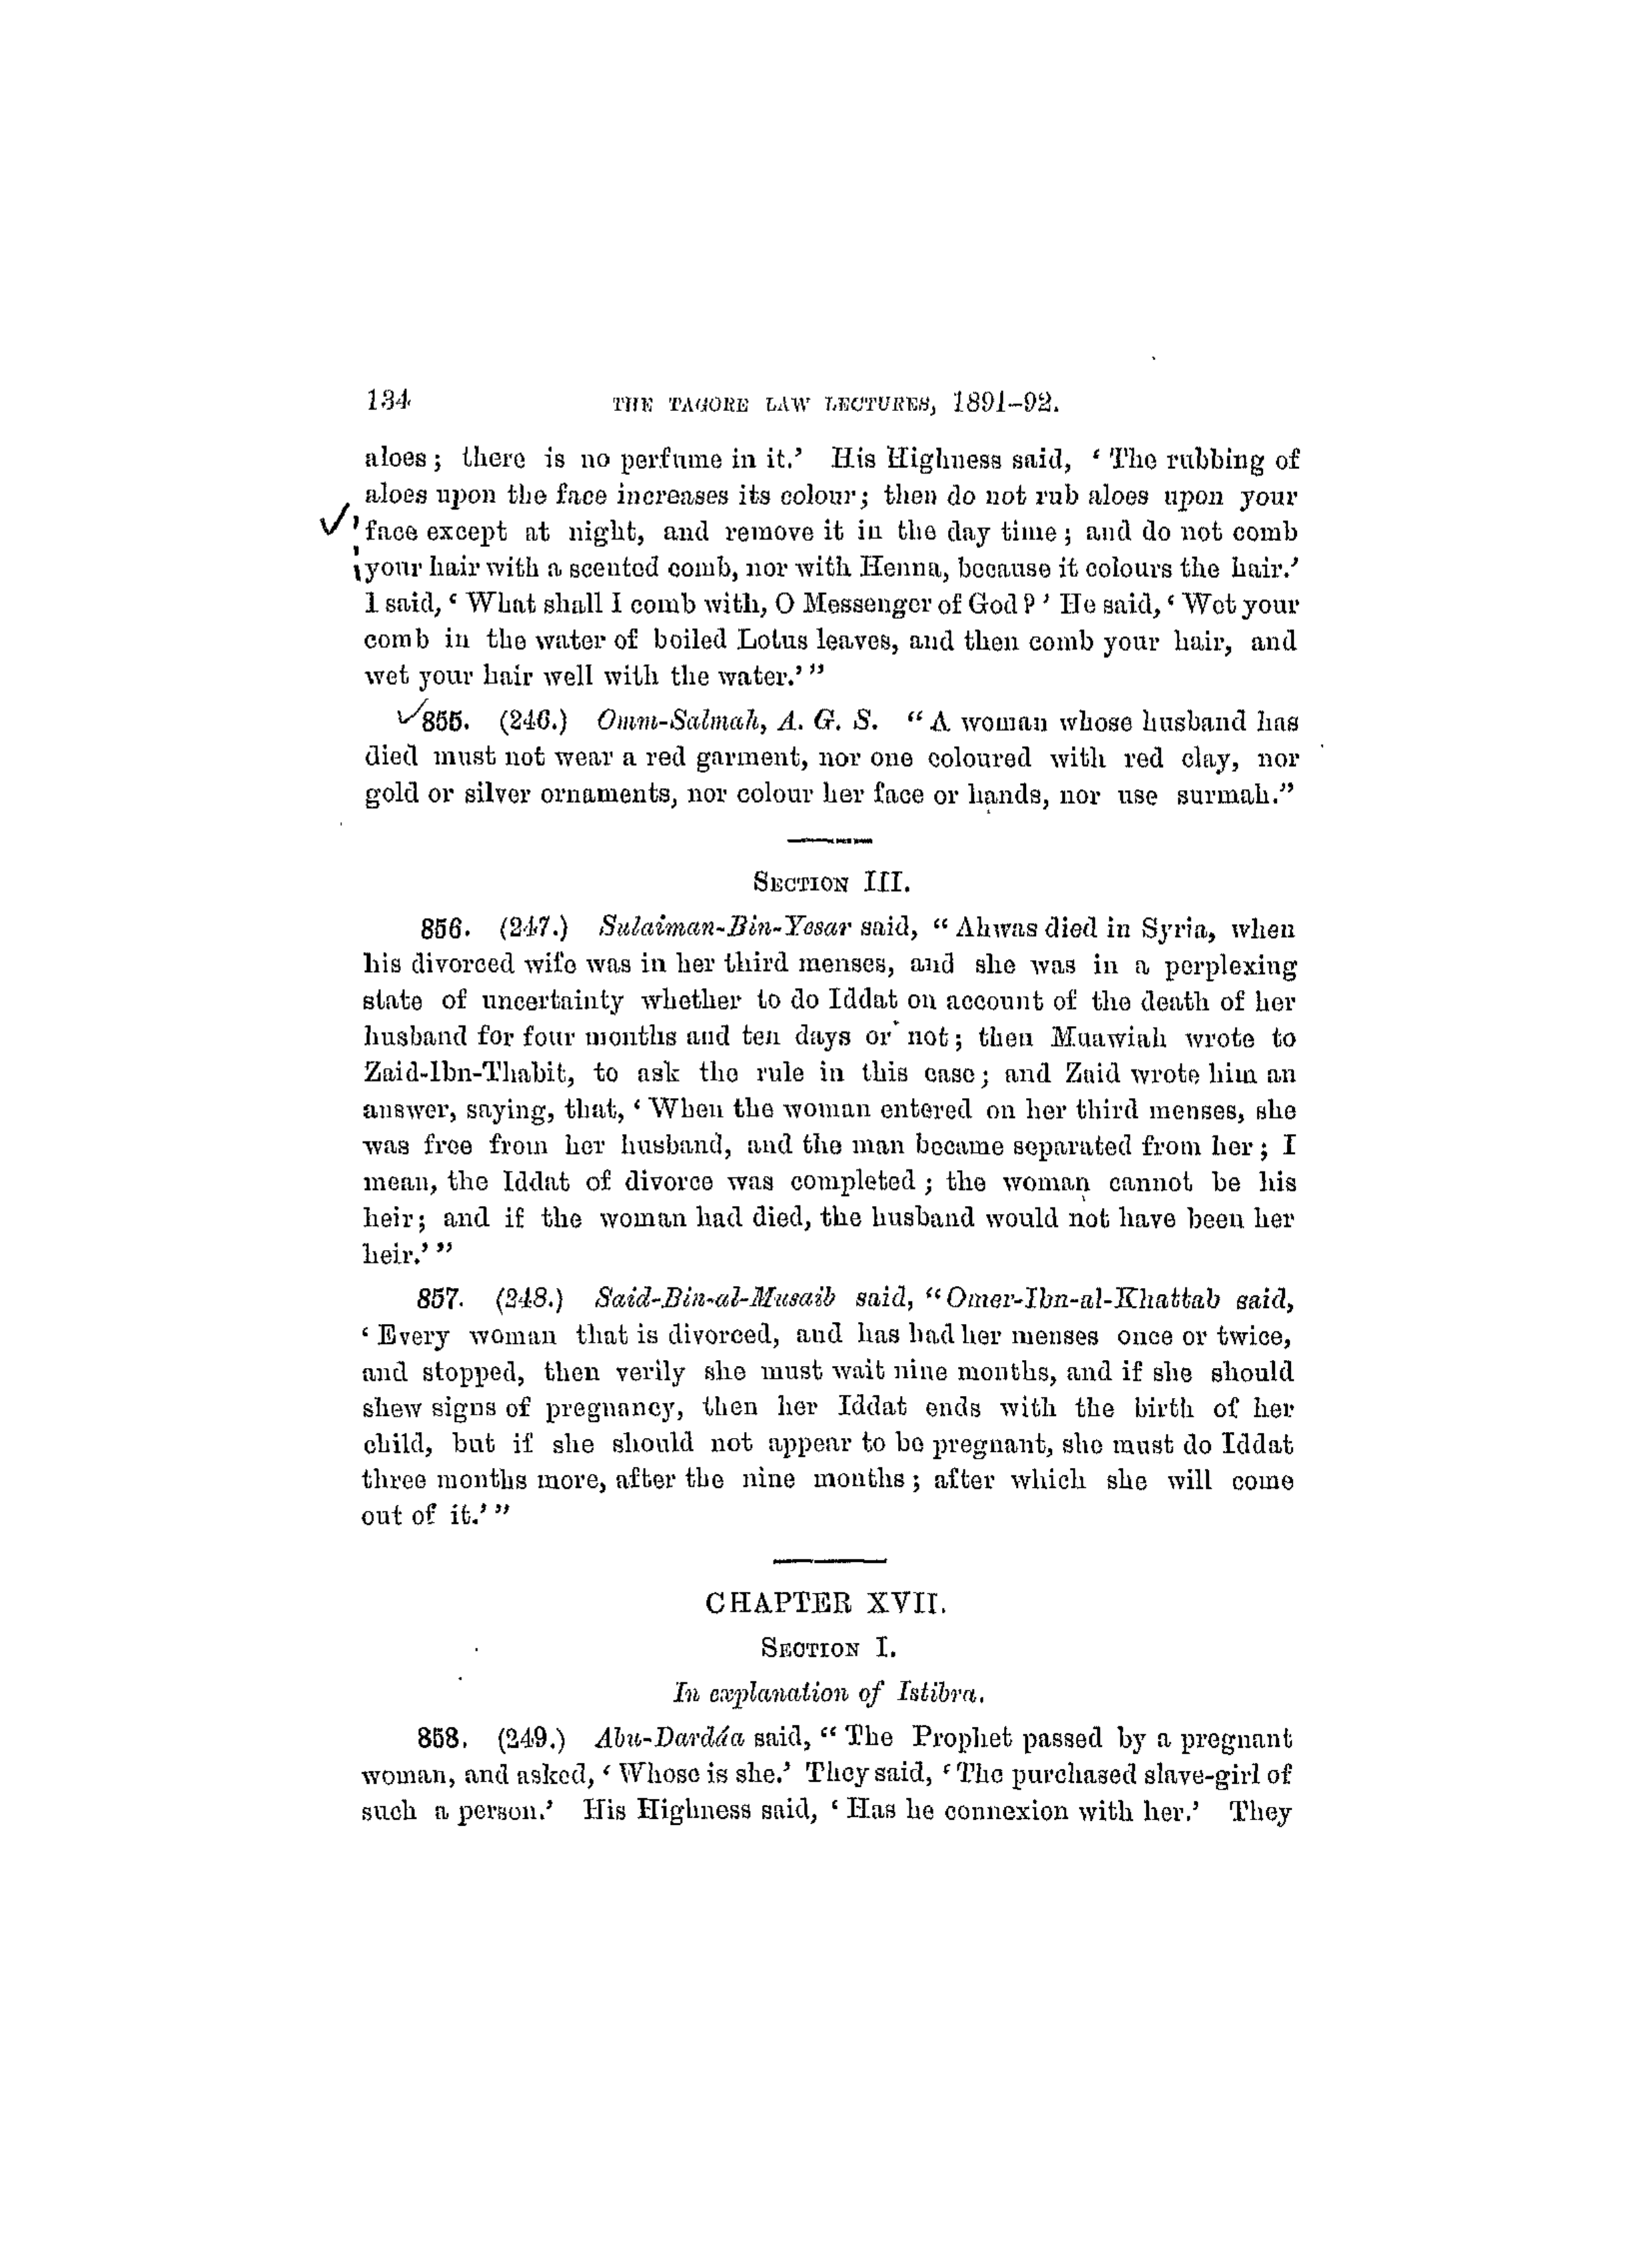 134 THE TAGORE LAW LECTURES, 1891–92.
aloes; there is no perfume in it.’ His Highness said, ‘The rubbing of
aloes upon the face increases its colour; then do not rub aloes upon your
face except at night, and remove it in the day time; and do not comb
your hair with a scented comb, nor with Henna, because it colours the hair.’
I said, ‘What shall I comb with, O Messenger of God?’ He said, ‘Wet your
comb in the water of boiled Lotus leaves, and then comb your hair, and
wet your hair well with the water.’”
855. (246.) Omm-Salmah, A. G. S. “A woman whose husband has
died must not wear a red garment, nor one coloured with red clay, nor
gold or silver ornaments, nor colour her face or hands, nor use surmah.”
SECTION III.
856. (247.) Sulaiman-Bin-Yesar said, “Ahwas died in Syria, when
his divorced wife was in her third menses, and she was in a perplexing
state of uncertainty whether to do Iddat on account of the death of her
husband for four months and ten days or not; then Muawiah wrote to
Zaid-Ibn-Thabit, to ask the rule in this case; and Zaid wrote him an
answer, saying, that, ‘When the woman entered on her third menses, she
was free from her husband, and the man became separated from her; I
mean, the Iddat of divorce was completed; the woman cannot be his
heir; and if the woman had died, the husband would not have been her
heir.’”
857. (248.) Said-Bin-al-Musaib said, “Omer-Ibn-al-Khattab said,
‘Every woman that is divorced, and has had her menses once or twice,
and stopped, then verily she must wait nine months, and if she should
shew signs of pregnancy, then her Iddat ends with the birth of her
child, but if she should not appear to be pregnant, she must do Iddat
three months more, after the nine months; after which she will come
out of it.’”
CHAPTER XVII.
SECTION I.
In explanation of Istibra.
858. (249.) Abu-Dardáa said, “The Prophet passed by a pregnant
woman, and asked, ‘Whose is she.’ They said, ‘The purchased slave-girl of
such a person.’ His Highness said, ‘Has he connexion with her.’ They